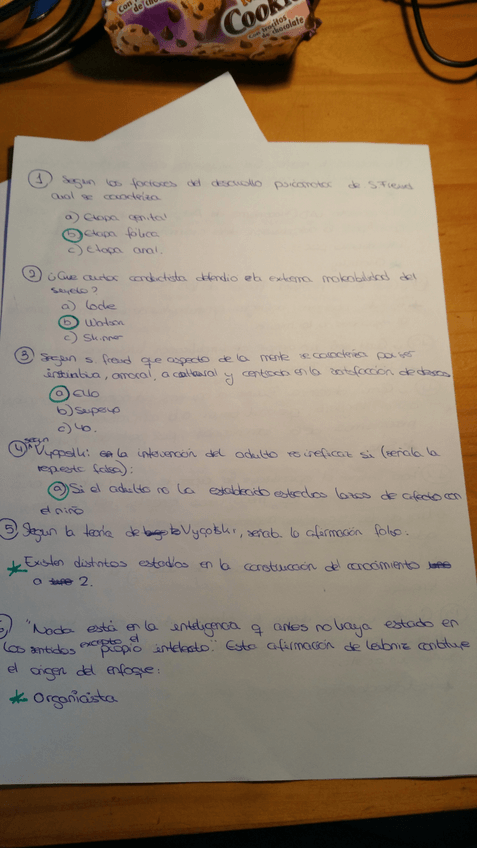 con
de cho
Cookie
con trocitos
de chocolate
1 Según los factores del desarrollo psicomotor de S. Freud
cual se caracteriza
a) Etapa genital
b) Etapa fálica
c) Etapa anal.
2 ¿Que autor conductista defendio la extrema moldeabilidad del
sujeto?
a) Locke
b) Watson
c) Skinner
3 Según s. freud que aspecto de la mente se caracteriza por ser
instintiva, amoral, a cultural y centrado en la satisfacción de deseos
a) Ello
b) Superyo
c) Yo.
4 según Vygostki: la intervención del adulto es ineficaz si (señala la
respuesta falsa):
a) Si el adulto no ha establecido estrechos lazos de afecto con
el niño
5 Según la teoría de Vygotski, señala la afirmación falsa.
* Existen distintos estadios en la construcción del conocimiento
o 2.
"Nada está en la inteligencia q antes no haya estado en
los sentidos excepto el propio intelecto." Esta afirmación de Leibniz constituye
el origen del enfoque:
* Organicista